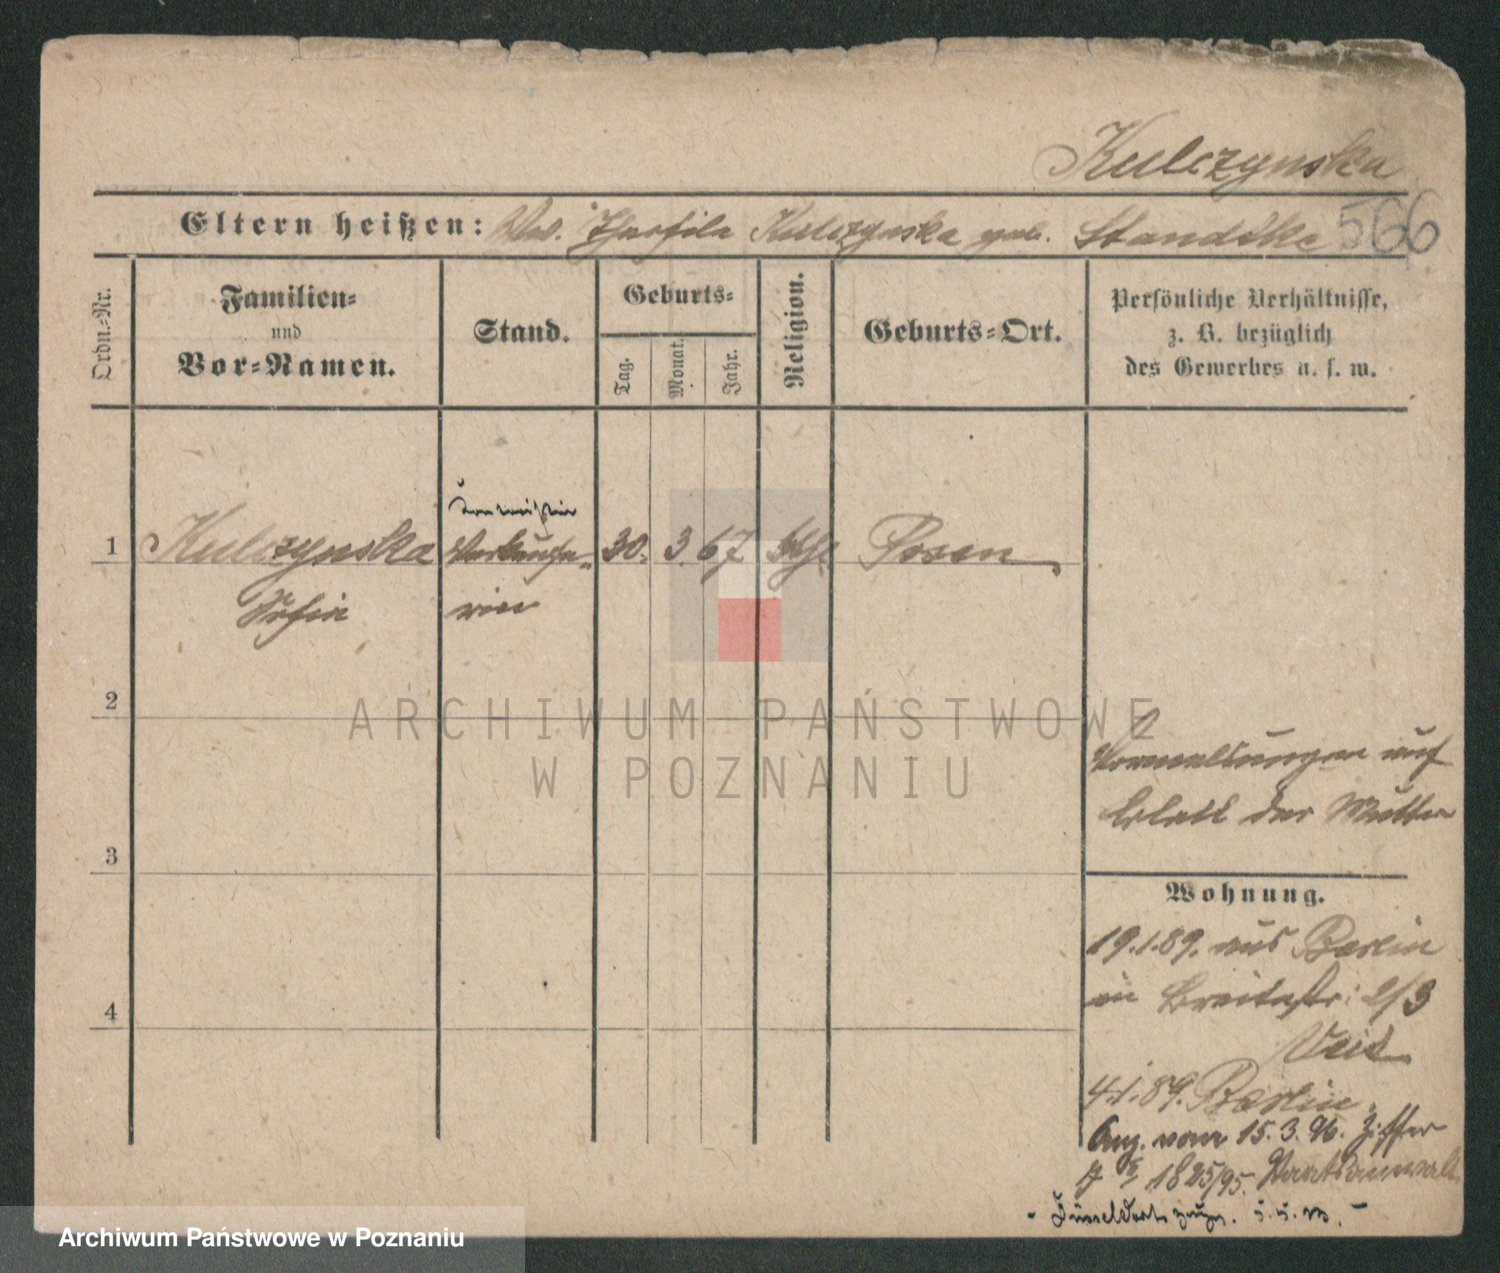 Kulczynska
566
Eltern heißen: Ww. Theofila Kulczynska geb.
Ordn.-Nr.
Familien-
und
Vor-Namen.
Stand.
Geburts-
Tag.
Monat.
Jahr.
Religion.
Geburts-Ort.
Persönliche Verhältnisse,
z. B. bezüglich
des Gewerbes u. s. w.
1 Kulczynska Verkäufe- 30. 3. 67 kth. Posen
Sofia rin
2
3
4
Bemerkungen auf
Blatt der Mutter
Wohnung.
19.1.89. aus Berlin
in Breitestr. 2/3
4.1.89. Berlin.
Anz. vom 15.3.96. Ziffer
1825/95. Staatsanwalt
Düsseldorf
ARCHIWUM PAŃSTWOWE
W POZNANIU
Archiwum Państwowe w Poznaniu